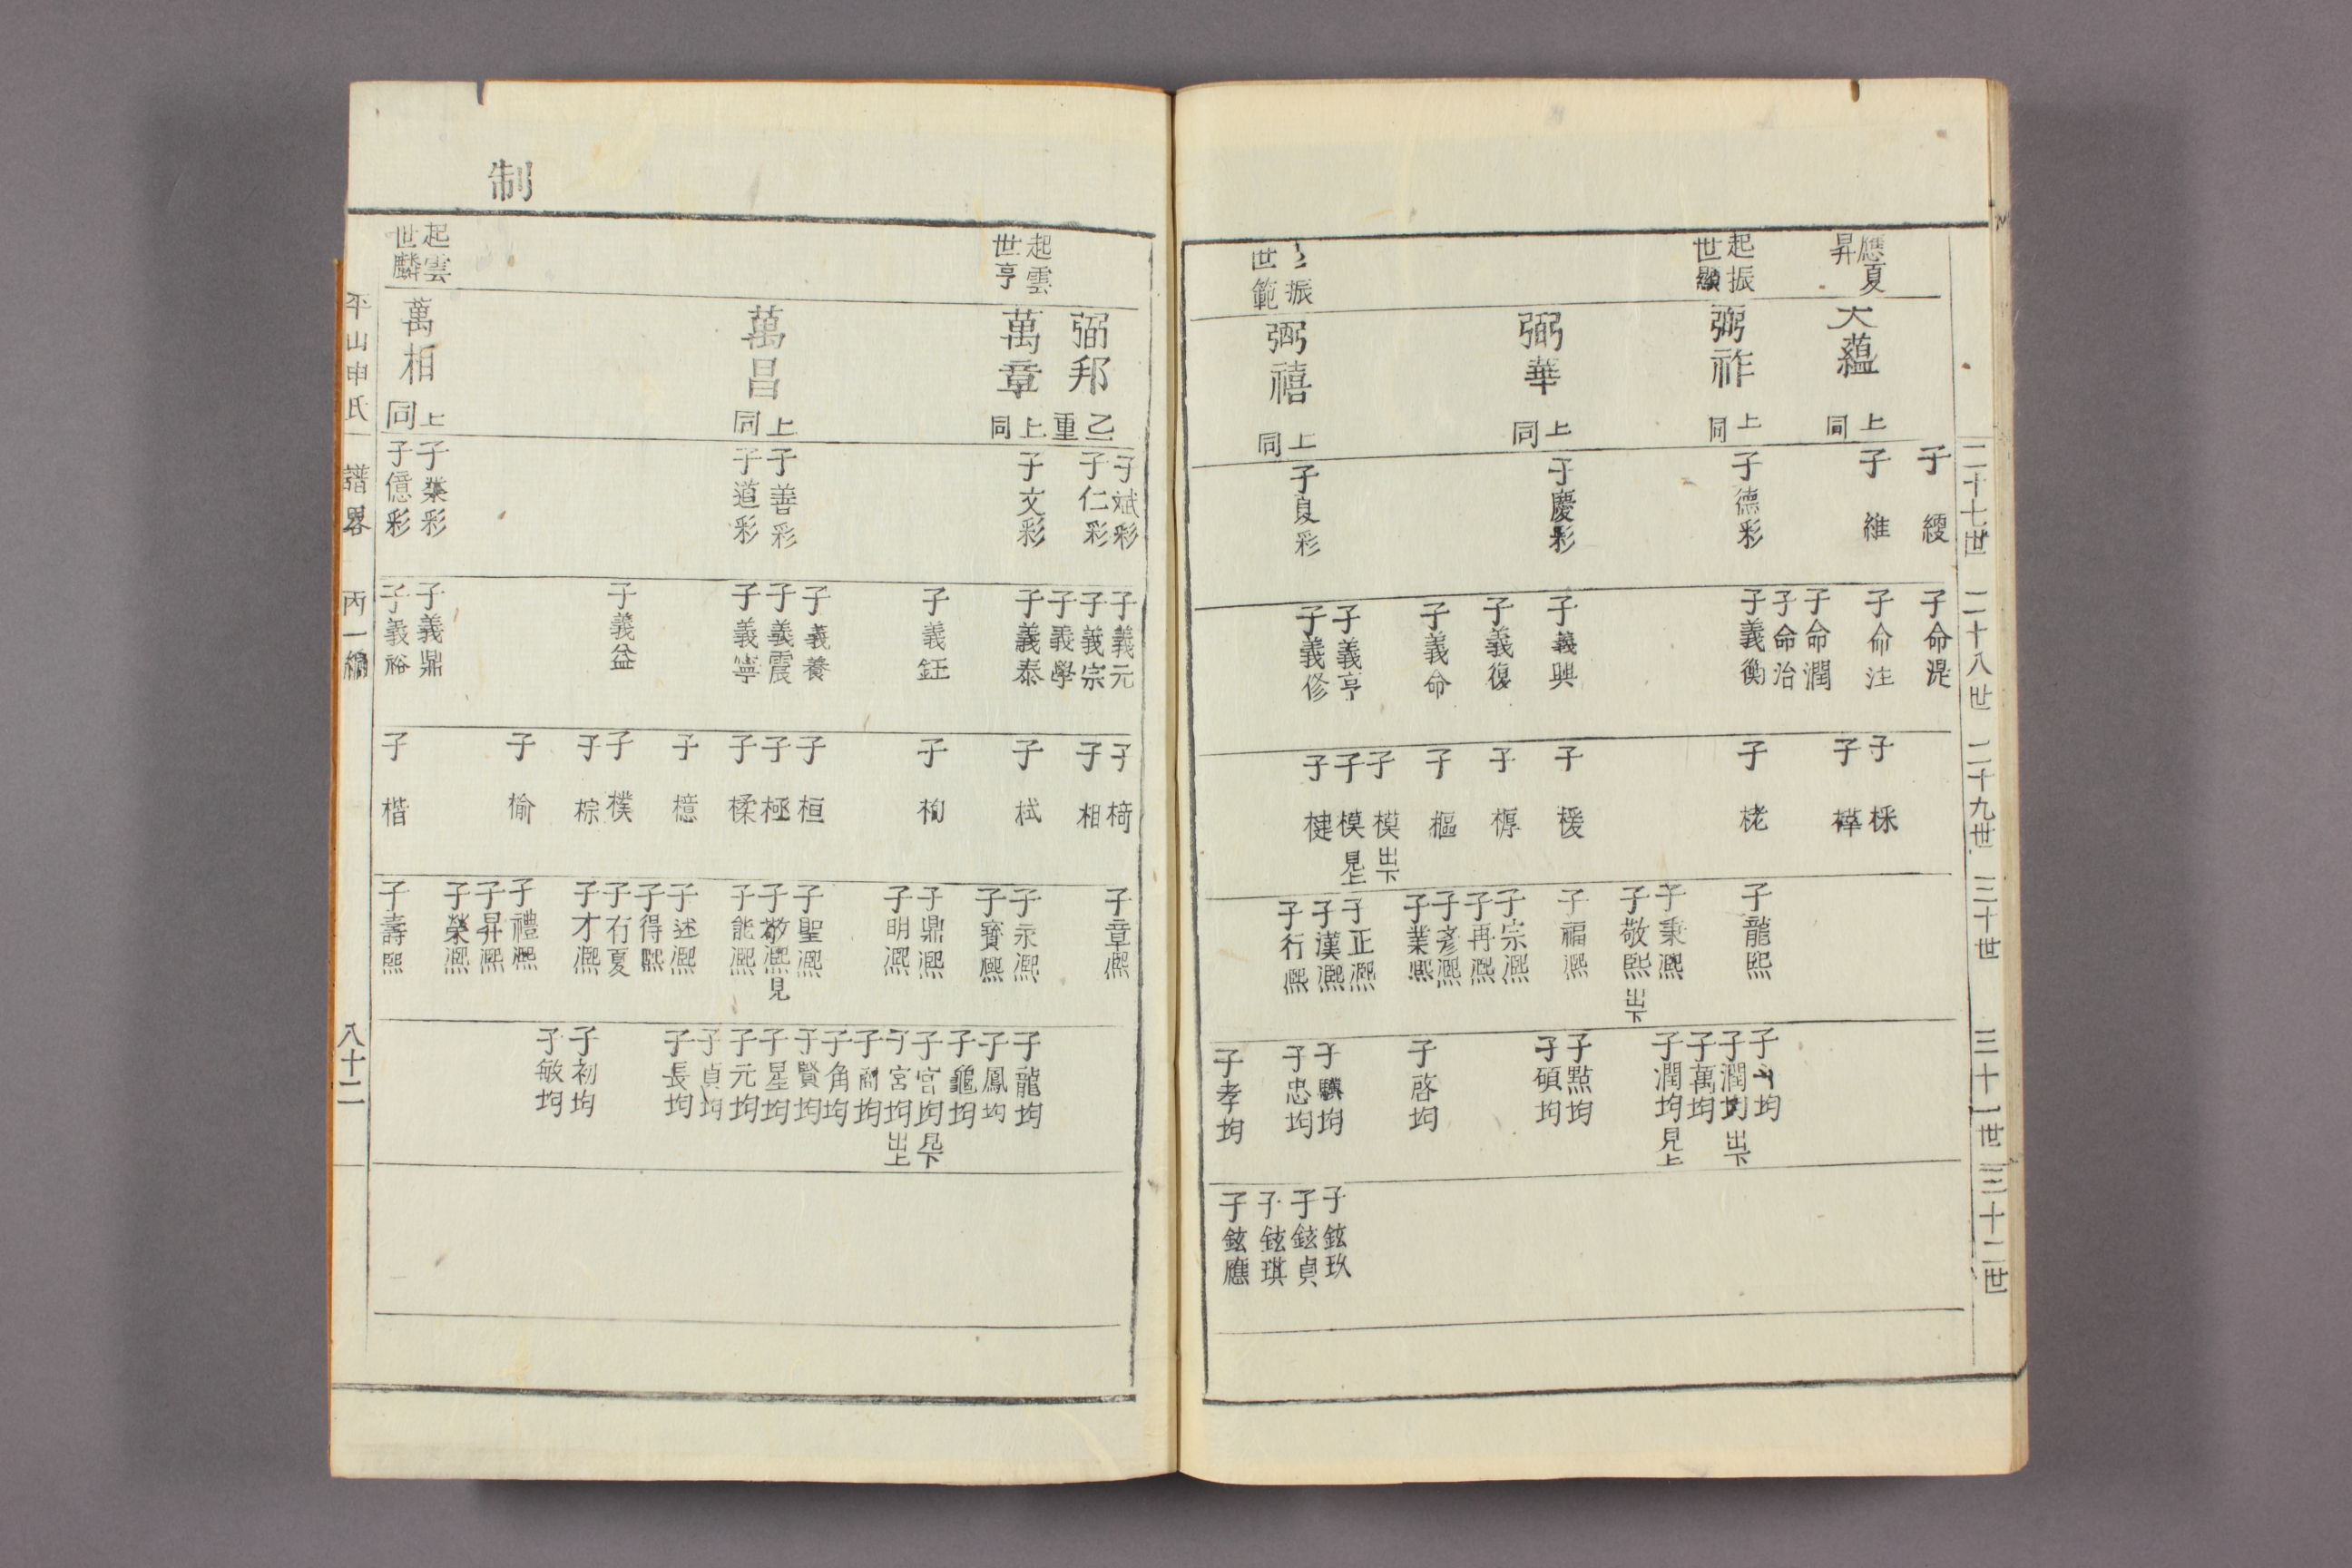 二十七世
二十八世
二十九世
三十世
三十一世
三十二世
應夏
昇
大蘊
上同
起振
世顯
弼祚
上同
弼華
上同
振
世範
弼禧
上同
子緮
子維
子德彩
子慶彩
子夏彩
子命湜
子命注
子命潤
子命治
子義衡
子義興
子義復
子義命
子義亨
子義修
子
子
子栳
子楥
子椁
子樞
子模出下
子模見上
子楗
子龍熙
子秉熙
子敬熙出下
子福熙
子宗熙
子再熙
子彦熙
子業熙
子正熙
子漢熙
子行熙
子均
子潤均出下
子萬均
子潤均見上
子點均
子碩均
子啓均
子驥均
子忠均
子孝均
子鉉玖
子鉉貞
子鉉琪
子鉉應
制
弼邦
乙重
起雲
世亨
萬章
上同
萬昌
上同
起雲
世麟
萬相
上同
子斌彩
子仁彩
子文彩
子善彩
子道彩
子業彩
子億彩
子義元
子義宗
子義學
子義泰
子義鈺
子義養
子義震
子義寧
子義益
子義鼎
子義裕
子椅
子相
子栻
子栒
子桓
子極
子楺
子檍
子樸
子棕
子楡
子楷
子章熙
子永熙
子寶熙
子鼎熙
子明熙
子聖熙
子敬熙見
子能熙
子述熙
子得熙
子右夏
子才熙
子禮熙
子昇熙
子榮熙
子壽熙
子龍均
子鳳均
子龜均
子宮均見下
子宮均出上
子商均
子角均
子賢均
子星均
子元均
子貞均
子長均
子初均
子敏均
平山申氏
譜畧
丙一編
八十二